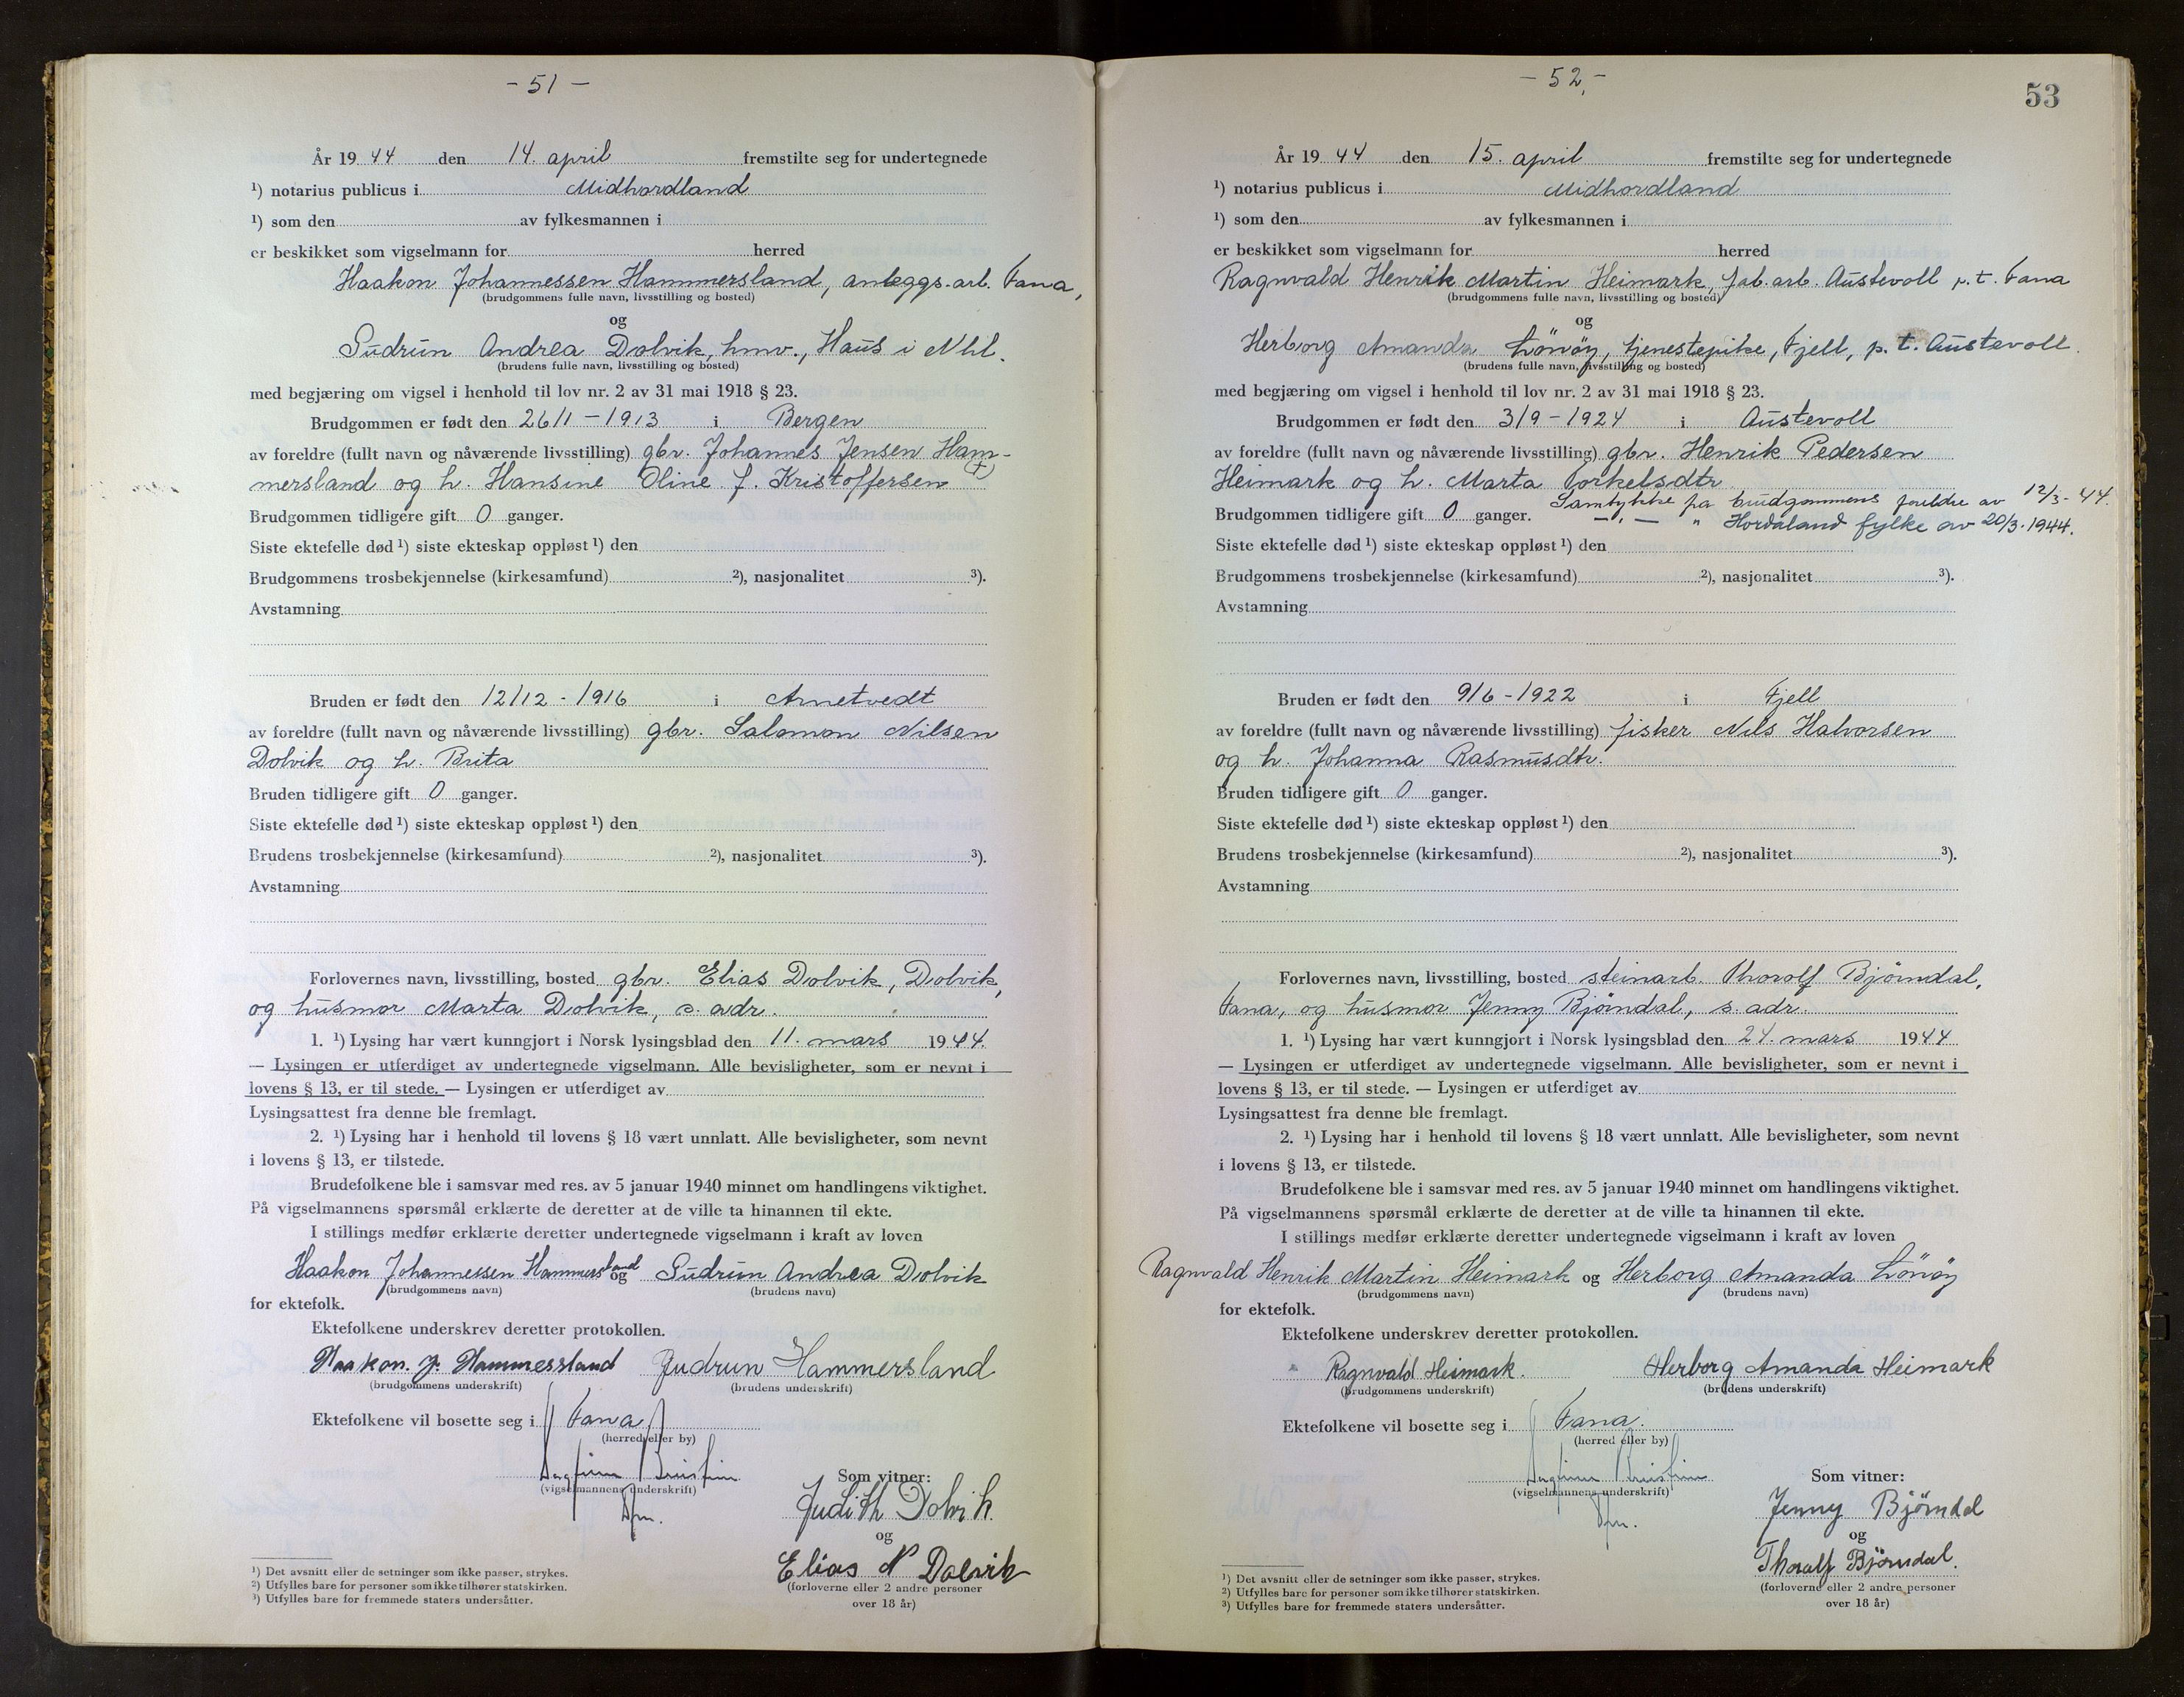 - 51 -
År 19 44 den 14. april fremstilte seg for undertegnede
¹) notarius publicus i Midhordland
¹) som den av fylkesmannen i
er beskikket som vigselmann for herred
Haakon Johannessen Hammersland, anleggs.arb. Fana,
(brudgommens fulle navn, livsstilling og bosted)
og
Gudrun Andrea Dolvik, hmv., Haus i Nhl.
(brudens fulle navn, livsstilling og bosted)
med begjæring om vigsel i henhold til lov nr. 2 av 31 mai 1918 § 23.
Brudgommen er født den 26/1 - 1913 i Bergen
av foreldre (fullt navn og nåværende livsstilling) gbr. Johannes Jensen Ham-
mersland og h. Hansine Oline f. Kristoffersen (+)
Brudgommen tidligere gift 0 ganger.
Siste ektefelle død ¹) siste ekteskap oppløst ¹) den
Brudgommens trosbekjennelse (kirkesamfund) ²), nasjonalitet ³).
Avstamning
Bruden er født den 12/12 - 1916 i Arnetvedt
av foreldre (fullt navn og nåværende livsstilling) gbr. Salomon Nilsen
Dolvik og h. Brita
Bruden tidligere gift 0 ganger.
Siste ektefelle død ¹) siste ekteskap oppløst ¹) den
Brudens trosbekjennelse (kirkesamfund) ²), nasjonalitet ³).
Avstamning
Forlovernes navn, livsstilling, bosted gbr. Elias Dolvik, Dolvik,
og husmor Marta Dolvik, s. adr.
1. ¹) Lysing har vært kunngjort i Norsk lysingsblad den 11. mars 1944.
— Lysingen er utferdiget av undertegnede vigselmann. Alle bevisligheter, som er nevnt i
lovens § 13, er til stede. — Lysingen er utferdiget av
Lysingsattest fra denne ble fremlagt.
2. ¹) Lysing har i henhold til lovens § 18 vært unnlatt. Alle bevisligheter, som nevnt
i lovens § 13, er tilstede.
Brudefolkene ble i samsvar med res. av 5 januar 1940 minnet om handlingens viktighet.
På vigselmannens spørsmål erklærte de deretter at de ville ta hinannen til ekte.
I stillings medfør erklærte deretter undertegnede vigselmann i kraft av loven
Haakon Johannessen Hammersland og Gudrun Andrea Dolvik
(brudgommens navn) (brudens navn)
for ektefolk.
Ektefolkene underskrev deretter protokollen.
Haakon. J. Hammersland Gudrun Hammersland
(brudgommens underskrift) (brudens underskrift)
Ektefolkene vil bosette seg i Fana
(herred eller by)
(vigselmannens underskrift)
Som vitner:
Judith Dolvik.
og
Elias N Dolvik
(forloverne eller 2 andre personer
over 18 år)
¹) Det avsnitt eller de setninger som ikke passer, strykes.
²) Utfylles bare for personer som ikke tilhører statskirken.
³) Utfylles bare for fremmede staters undersåtter.
- 52. -
53
År 19 44 den 15. april fremstilte seg for undertegnede
¹) notarius publicus i Midhordland
¹) som den av fylkesmannen i
er beskikket som vigselmann for herred
Ragnvald Henrik Martin Heimark, fab.arb. Austevoll p.t. Fana
(brudgommens fulle navn, livsstilling og bosted)
og
Herborg Amanda Lönöy, tjenestepike, Fjell, p.t. Austevoll.
(brudens fulle navn, livsstilling og bosted)
med begjæring om vigsel i henhold til lov nr. 2 av 31 mai 1918 § 23.
Brudgommen er født den 3/9 - 1924 i Austevoll
av foreldre (fullt navn og nåværende livsstilling) gbr. Henrik Pedersen
Heimark og h. Marta Torkelsdtr
Samtykke fra brudgommens foreldre av 12/3-44.
Brudgommen tidligere gift 0 ganger. —"— " Hordaland fylke av 20/3.1944.
Siste ektefelle død ¹) siste ekteskap oppløst ¹) den
Brudgommens trosbekjennelse (kirkesamfund) ²), nasjonalitet ³).
Avstamning
Bruden er født den 9/6 - 1922 i Fjell
av foreldre (fullt navn og nåværende livsstilling) fisker Nils Halvorsen
og h. Johanna Rasmusdtr.
Bruden tidligere gift 0 ganger.
Siste ektefelle død ¹) siste ekteskap oppløst ¹) den
Brudens trosbekjennelse (kirkesamfund) ²), nasjonalitet ³).
Avstamning
Forlovernes navn, livsstilling, bosted steinarb. Thorolf Björndal,
Fana, og husmor Jenny Björndal, s. adr.
1. ¹) Lysing har vært kunngjort i Norsk lysingsblad den 24. mars 1944
— Lysingen er utferdiget av undertegnede vigselmann. Alle bevisligheter, som er nevnt i
lovens § 13, er til stede. — Lysingen er utferdiget av
Lysingsattest fra denne ble fremlagt.
2. ¹) Lysing har i henhold til lovens § 18 vært unnlatt. Alle bevisligheter, som nevnt
i lovens § 13, er tilstede.
Brudefolkene ble i samsvar med res. av 5 januar 1940 minnet om handlingens viktighet.
På vigselmannens spørsmål erklærte de deretter at de ville ta hinannen til ekte.
I stillings medfør erklærte deretter undertegnede vigselmann i kraft av loven
Ragnvald Henrik Martin Heimark og Herborg Amanda Lönöy
(brudgommens navn) (brudens navn)
for ektefolk.
Ektefolkene underskrev deretter protokollen.
Ragnvald Heimark. Herborg Amanda Heimark
(brudgommens underskrift) (brudens underskrift)
Ektefolkene vil bosette seg i Fana.
(herred eller by)
(vigselmannens underskrift)
Som vitner:
Jenny Björndal
og
Thoralf Björndal.
(forloverne eller 2 andre personer
over 18 år)
¹) Det avsnitt eller de setninger som ikke passer, strykes.
²) Utfylles bare for personer som ikke tilhører statskirken.
³) Utfylles bare for fremmede staters undersåtter.